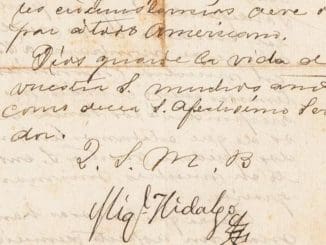 por átros Americano.
Dios guarde la vida de
vuestra S. muchos
como decia S. afectisimo Ser
dor.
Q. S. M. B
Migl. Hidalgo